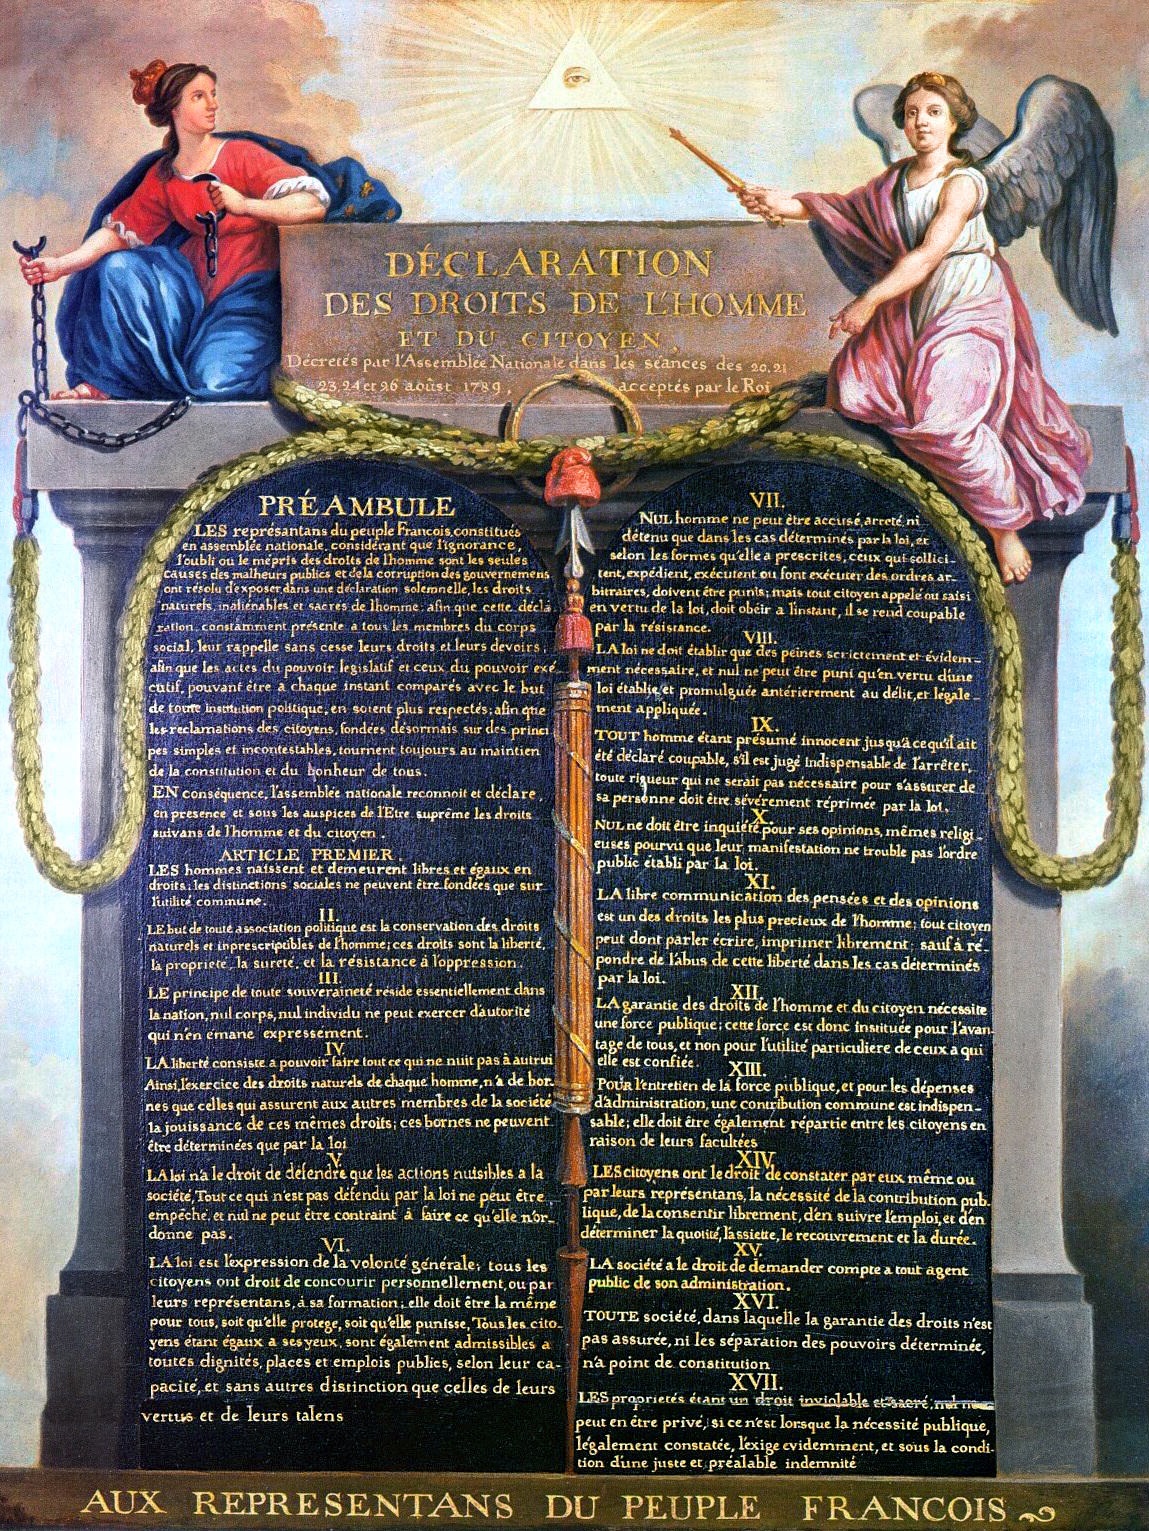 DÉCLARATION
DES DROITS DE L'HOMME
ET DU CITOYEN,
Décretés par l'Assemblée Nationale dans les séances des 20, 21
23, 24 et 26 août 1789, acceptés par le Roi
PRÉAMBULE
LES représantans du peuple Francois, constitués
en assemblée nationale, considérant que l'ignorance,
l'oubli ou le mépris des droits de l'homme sont les seules
causes des malheurs publics et de la corruption des gouvernemens
ont résolu d'exposer dans une déclaration solemnelle, les droits
naturels, inaliénables et sacrés de l'homme; afin que cette décla
ration, constamment présente a tous les membres du corps
social, leur rappelle sans cesse leurs droits et leurs devoirs;
afin que les actes du pouvoir législatif et ceux du pouvoir exé
cutif, pouvant être a chaque instant comparés avec le but
de toute institution politique, en soient plus respectés; afin que
les reclamations des citoyens, fondées désormais sur des princi
pes simples et incontestables, tournent toujours au maintien
de la constitution et du bonheur de tous.
EN conséquence, l'assemblée nationale reconnoit et déclare,
en presence et sous les auspices de l'Etre suprême les droits
suivans de l'homme et du citoyen.
ARTICLE PREMIER.
LES hommes naissent et demeurent libres et égaux en
droits; les distinctions sociales ne peuvent être fondées que sur
l'utilité commune.
II.
LE but de toute association politique est la conservation des droits
naturels et inprescriptibles de l'homme; ces droits sont la liberté,
la propriété, la sureté, et la résistance à l'oppression.
III.
LE principe de toute souveraineté réside essentiellement dans
la nation, nul corps, nul individu ne peut exercer d'autorité
qui n'en émane expressement.
IV.
LA liberté consiste a pouvoir faire tout ce qui ne nuit pas à autrui
Ainsi, l'exercice des droits naturels de chaque homme, n'a de bor-
nes que celles qui assurent aux autres membres de la société
la jouissance de ces mêmes droits; ces bornes ne peuvent
être déterminées que par la loi
V.
LA loi n'a le droit de défendre que les actions nuisibles a la
société, Tout ce qui n'est pas défendu par la loi ne peut être
empêché, et nul ne peut être contraint à faire ce qu'elle n'or-
donne pas.
VI.
LA loi est l'expression de la volonté générale; tous les
citoyens ont droit de concourir personnellement, ou par
leurs représentans, à sa formation; elle doit être la même
pour tous, soit qu'elle protege, soit qu'elle punisse, Tous les cito-
yens étant égaux a ses yeux, sont également admissibles a
toutes dignités, places et emplois publics, selon leur ca-
pacité, et sans autres distinction que celles de leurs
vertus et de leurs talens
VII.
NUL homme ne peut être accusé, arreté ni
détenu que dans les cas déterminés par la loi, et
selon les formes qu'elle a prescrites, ceux qui sollici-
tent, expédient, exécutent ou font exécuter des ordres ar-
bitraires, doivent être punis; mais tout citoyen appelé ou saisi
en vertu de la loi, doit obéir a l'instant, il se rend coupable
par la résistance.
VIII.
LA loi ne doit établir que des peines strictement et évidem-
ment nécessaire, et nul ne peut être puni qu'en vertu d'une
loi établie et promulguée antérierement au délit, et légale-
ment appliquée.
IX.
TOUT homme étant présumé innocent jusqu'à ce qu'il ait
été déclaré coupable, s'il est jugé indispensable de l'arrêter,
toute rigueur qui ne serait pas nécessaire pour s'assurer de
sa personne doit être sévèrement réprimée par la loi.
X.
NUL ne doit être inquiété pour ses opinions, mêmes religi-
euses pourvu que leur manifestation ne trouble pas l'ordre
public établi par la loi.
XI.
LA libre communication des pensées et des opinions
est un des droits les plus precieux de l'homme; tout citoyen
peut dont parler écrire, imprimer librement; sauf à ré-
pondre de l'abus de cette liberté dans les cas déterminés
par la loi.
XII.
LA garantie des droits de l'homme et du citoyen nécessite
une force publique; cette force est donc instituée pour l'avan-
tage de tous, et non pour l'utilité particuliere de ceux a qui
elle est confiée.
XIII.
POUR l'entretien de la force publique, et pour les dépenses
d'administration, une contribution commune est indispen-
sable; elle doit être également répartie entre les citoyens en
raison de leurs facultées
XIV.
LES citoyens ont le droit de constater par eux même ou
par leurs représentans, la nécessité de la contribution pub-
lique, de la consentir librement, d'en suivre l'emploi, et d'en
déterminer la quotité, l'assiette, le recouvrement et la durée.
XV.
LA société a le droit de demander compte a tout agent
public de son administration.
XVI.
TOUTE société, dans laquelle la garantie des droits n'est
pas assurée, ni les séparation des pouvoirs déterminée,
n'a point de constitution
XVII.
LES proprietés étant un droit inviolable et sacré, nul ne
peut en être privé, si ce n'est lorsque la nécessité publique,
légalement constatée, l'exige evidemment, et sous la condi-
tion d'une juste et préalable indemnité
AUX REPRESENTANS DU PEUPLE FRANCOIS